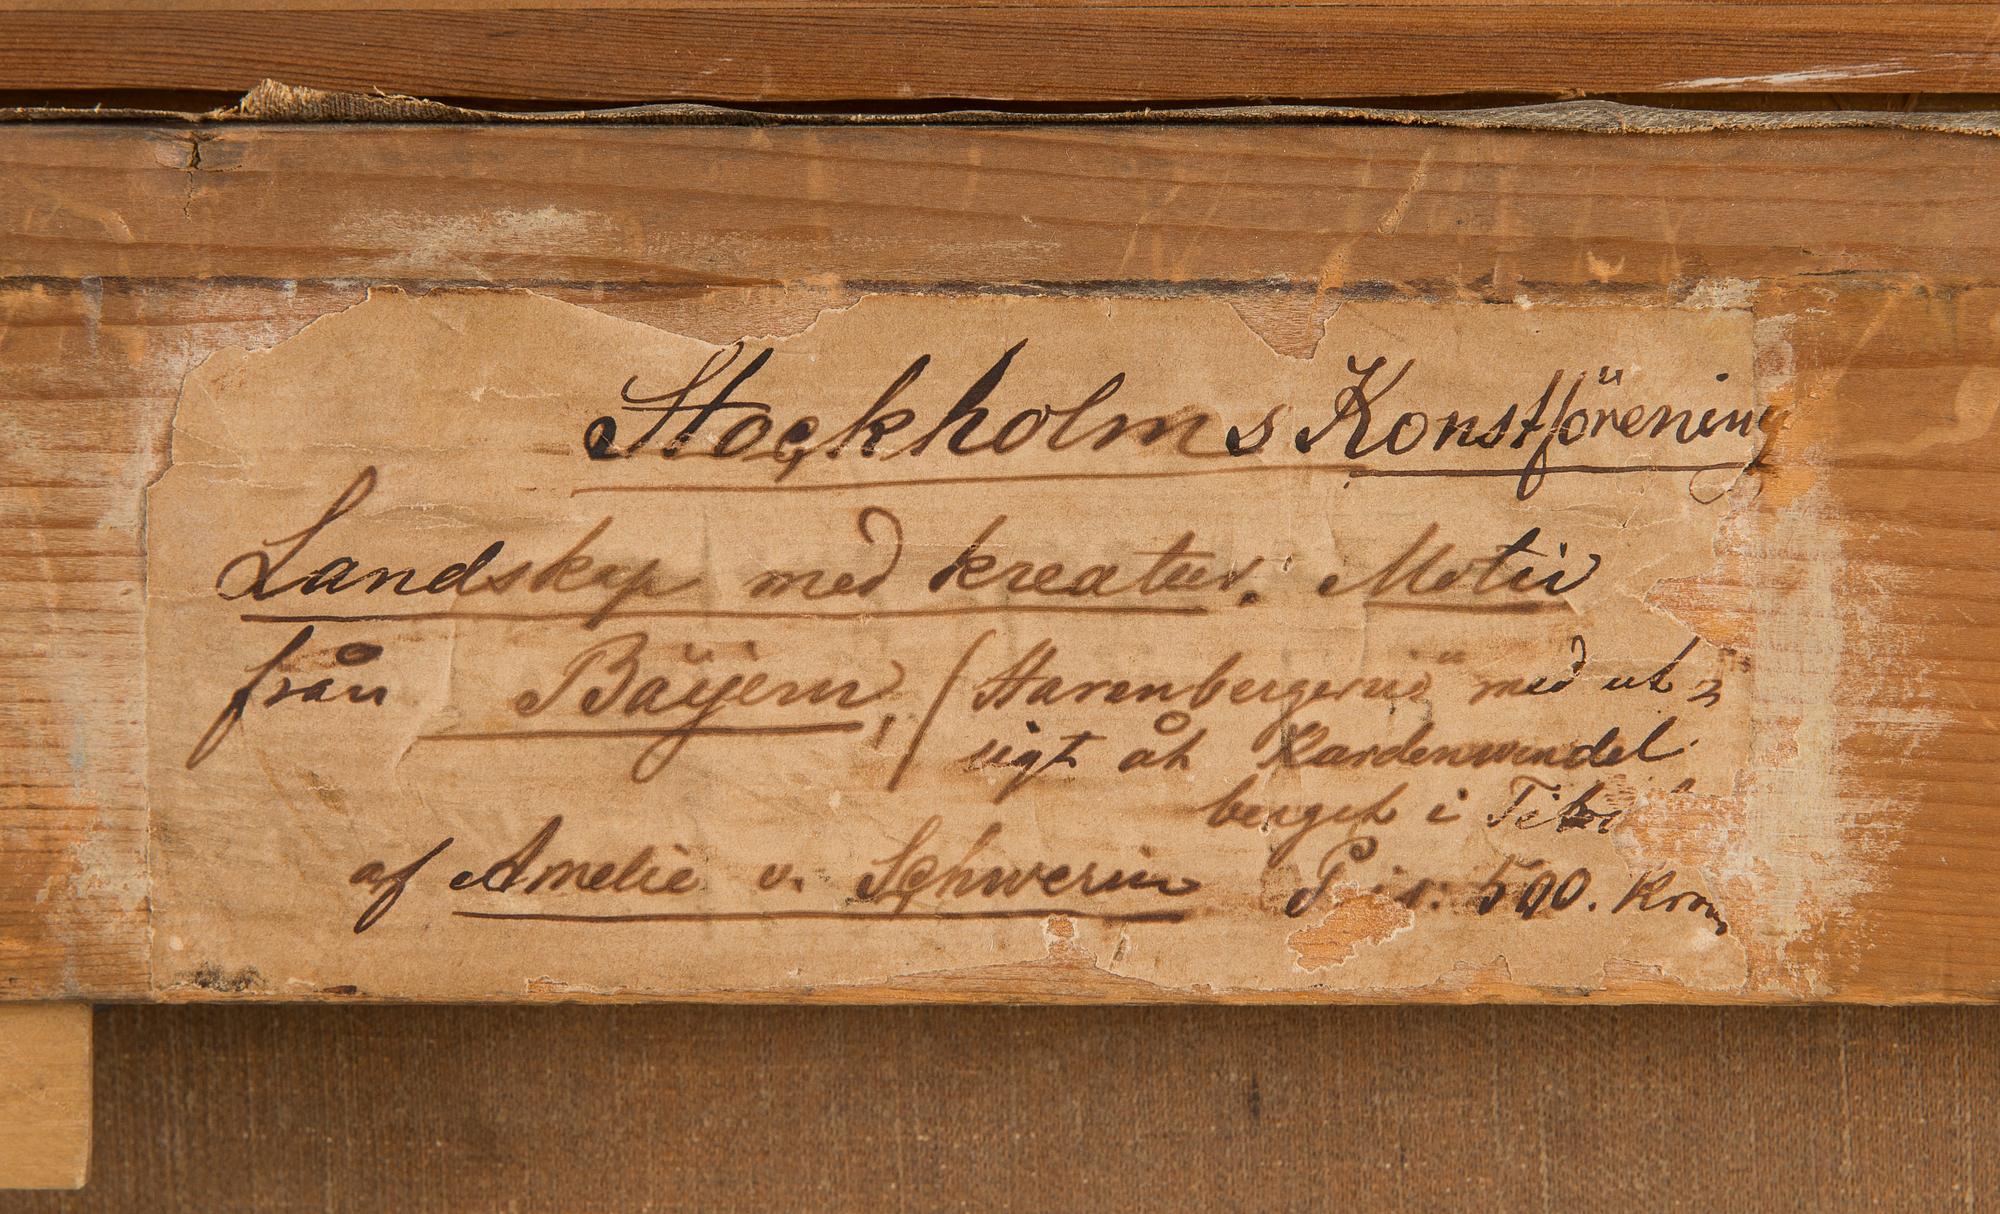 Stockholms Konstförening
Landskap med kreatur. Motiv
från Bäyern, (Starenbergersee med ut=
sigt åt Kardenwendel
berget i
af Amelie v. Schwerin Pris: 500. Kron